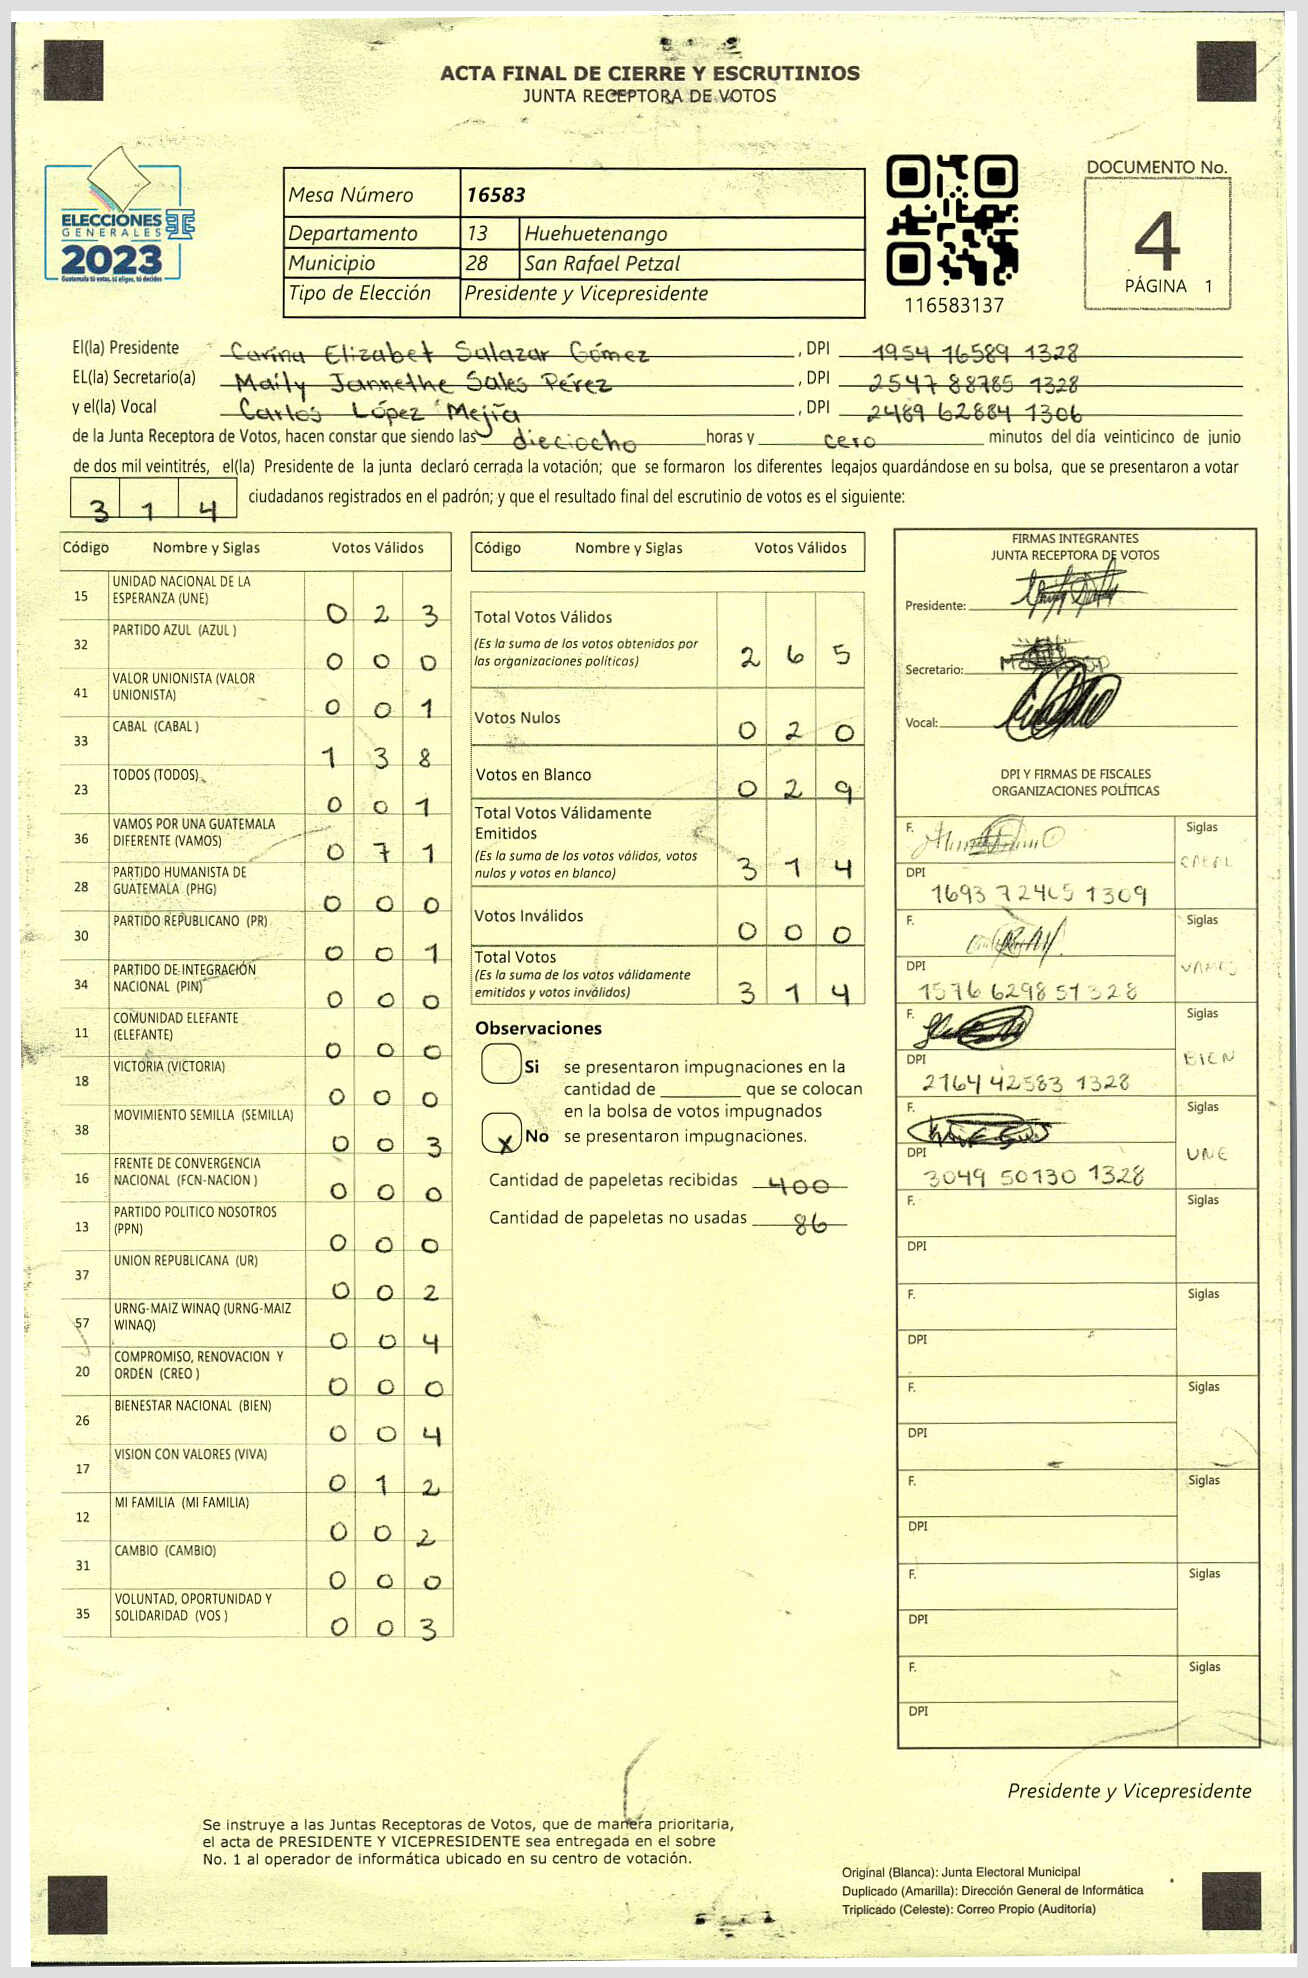 ACTA FINAL DE CIERRE Y ESCRUTINIOS
JUNTA RECEPTORA DE VOTOS
ELECCIONES
GENERALES
2023
Guatemala tú votas, tú eliges, tú decides
Mesa Número 16583
Departamento 13 Huehuetenango
Municipio 28 San Rafael Petzal
Tipo de Elección Presidente y Vicepresidente
116583137
DOCUMENTO No.
4
PÁGINA 1
El(la) Presidente Carina Elizabet Salazar Gómez , DPI 1954 16589 1328
EL(la) Secretario(a) Maily Jannethe Sales Pérez , DPI 2547 88785 1328
y el(la) Vocal Carlos López Mejía , DPI 2489 62884 1306
de la Junta Receptora de Votos, hacen constar que siendo las dieciocho horas y cero minutos del día veinticinco de junio
de dos mil veintitrés, el(la) Presidente de la junta declaró cerrada la votación; que se formaron los diferentes legajos guardándose en su bolsa, que se presentaron a votar
3 1 4 ciudadanos registrados en el padrón; y que el resultado final del escrutinio de votos es el siguiente:
Código Nombre y Siglas Votos Válidos
15 UNIDAD NACIONAL DE LA
ESPERANZA (UNE) 0 2 3
32 PARTIDO AZUL (AZUL ) 0 0 0
41 VALOR UNIONISTA (VALOR
UNIONISTA) 0 0 1
33 CABAL (CABAL ) 1 3 8
23 TODOS (TODOS) 0 0 1
36 VAMOS POR UNA GUATEMALA
DIFERENTE (VAMOS) 0 7 1
28 PARTIDO HUMANISTA DE
GUATEMALA (PHG) 0 0 0
30 PARTIDO REPUBLICANO (PR) 0 0 1
34 PARTIDO DE INTEGRACIÓN
NACIONAL (PIN) 0 0 0
11 COMUNIDAD ELEFANTE
(ELEFANTE) 0 0 0
18 VICTORIA (VICTORIA) 0 0 0
38 MOVIMIENTO SEMILLA (SEMILLA) 0 0 3
16 FRENTE DE CONVERGENCIA
NACIONAL (FCN-NACION ) 0 0 0
13 PARTIDO POLITICO NOSOTROS
(PPN) 0 0 0
37 UNION REPUBLICANA (UR) 0 0 2
57 URNG-MAIZ WINAQ (URNG-MAIZ
WINAQ) 0 0 4
20 COMPROMISO, RENOVACION Y
ORDEN (CREO ) 0 0 0
26 BIENESTAR NACIONAL (BIEN) 0 0 4
17 VISION CON VALORES (VIVA) 0 1 2
12 MI FAMILIA (MI FAMILIA) 0 0 2
31 CAMBIO (CAMBIO) 0 0 0
35 VOLUNTAD, OPORTUNIDAD Y
SOLIDARIDAD (VOS ) 0 0 3
Código Nombre y Siglas Votos Válidos
Total Votos Válidos
(Es la suma de los votos obtenidos por
las organizaciones políticas) 2 6 5
Votos Nulos 0 2 0
Votos en Blanco 0 2 9
Total Votos Válidamente
Emitidos
(Es la suma de los votos válidos, votos
nulos y votos en blanco) 3 1 4
Votos Inválidos 0 0 0
Total Votos
(Es la suma de los votos válidamente
emitidos y votos inválidos) 3 1 4
Observaciones
Si se presentaron impugnaciones en la
cantidad de ________ que se colocan
en la bolsa de votos impugnados
X No se presentaron impugnaciones.
Cantidad de papeletas recibidas 400
Cantidad de papeletas no usadas 86
FIRMAS INTEGRANTES
JUNTA RECEPTORA DE VOTOS
Presidente:
Secretario:
Vocal:
DPI Y FIRMAS DE FISCALES
ORGANIZACIONES POLÍTICAS
F. Siglas
CABAL
DPI
1693 72465 1309
F. Siglas
VAMOS
DPI
1576 62985 1328
F. Siglas
BIEN
DPI
2164 42583 1328
F. Siglas
UNE
DPI
3049 50130 1328
F. Siglas
DPI
F. Siglas
DPI
F. Siglas
DPI
F. Siglas
DPI
F. Siglas
DPI
F. Siglas
DPI
Presidente y Vicepresidente
Se instruye a las Juntas Receptoras de Votos, que de manera prioritaria,
el acta de PRESIDENTE Y VICEPRESIDENTE sea entregada en el sobre
No. 1 al operador de informática ubicado en su centro de votación.
Original (Blanca): Junta Electoral Municipal
Duplicado (Amarilla): Dirección General de Informática
Triplicado (Celeste): Correo Propio (Auditoría)